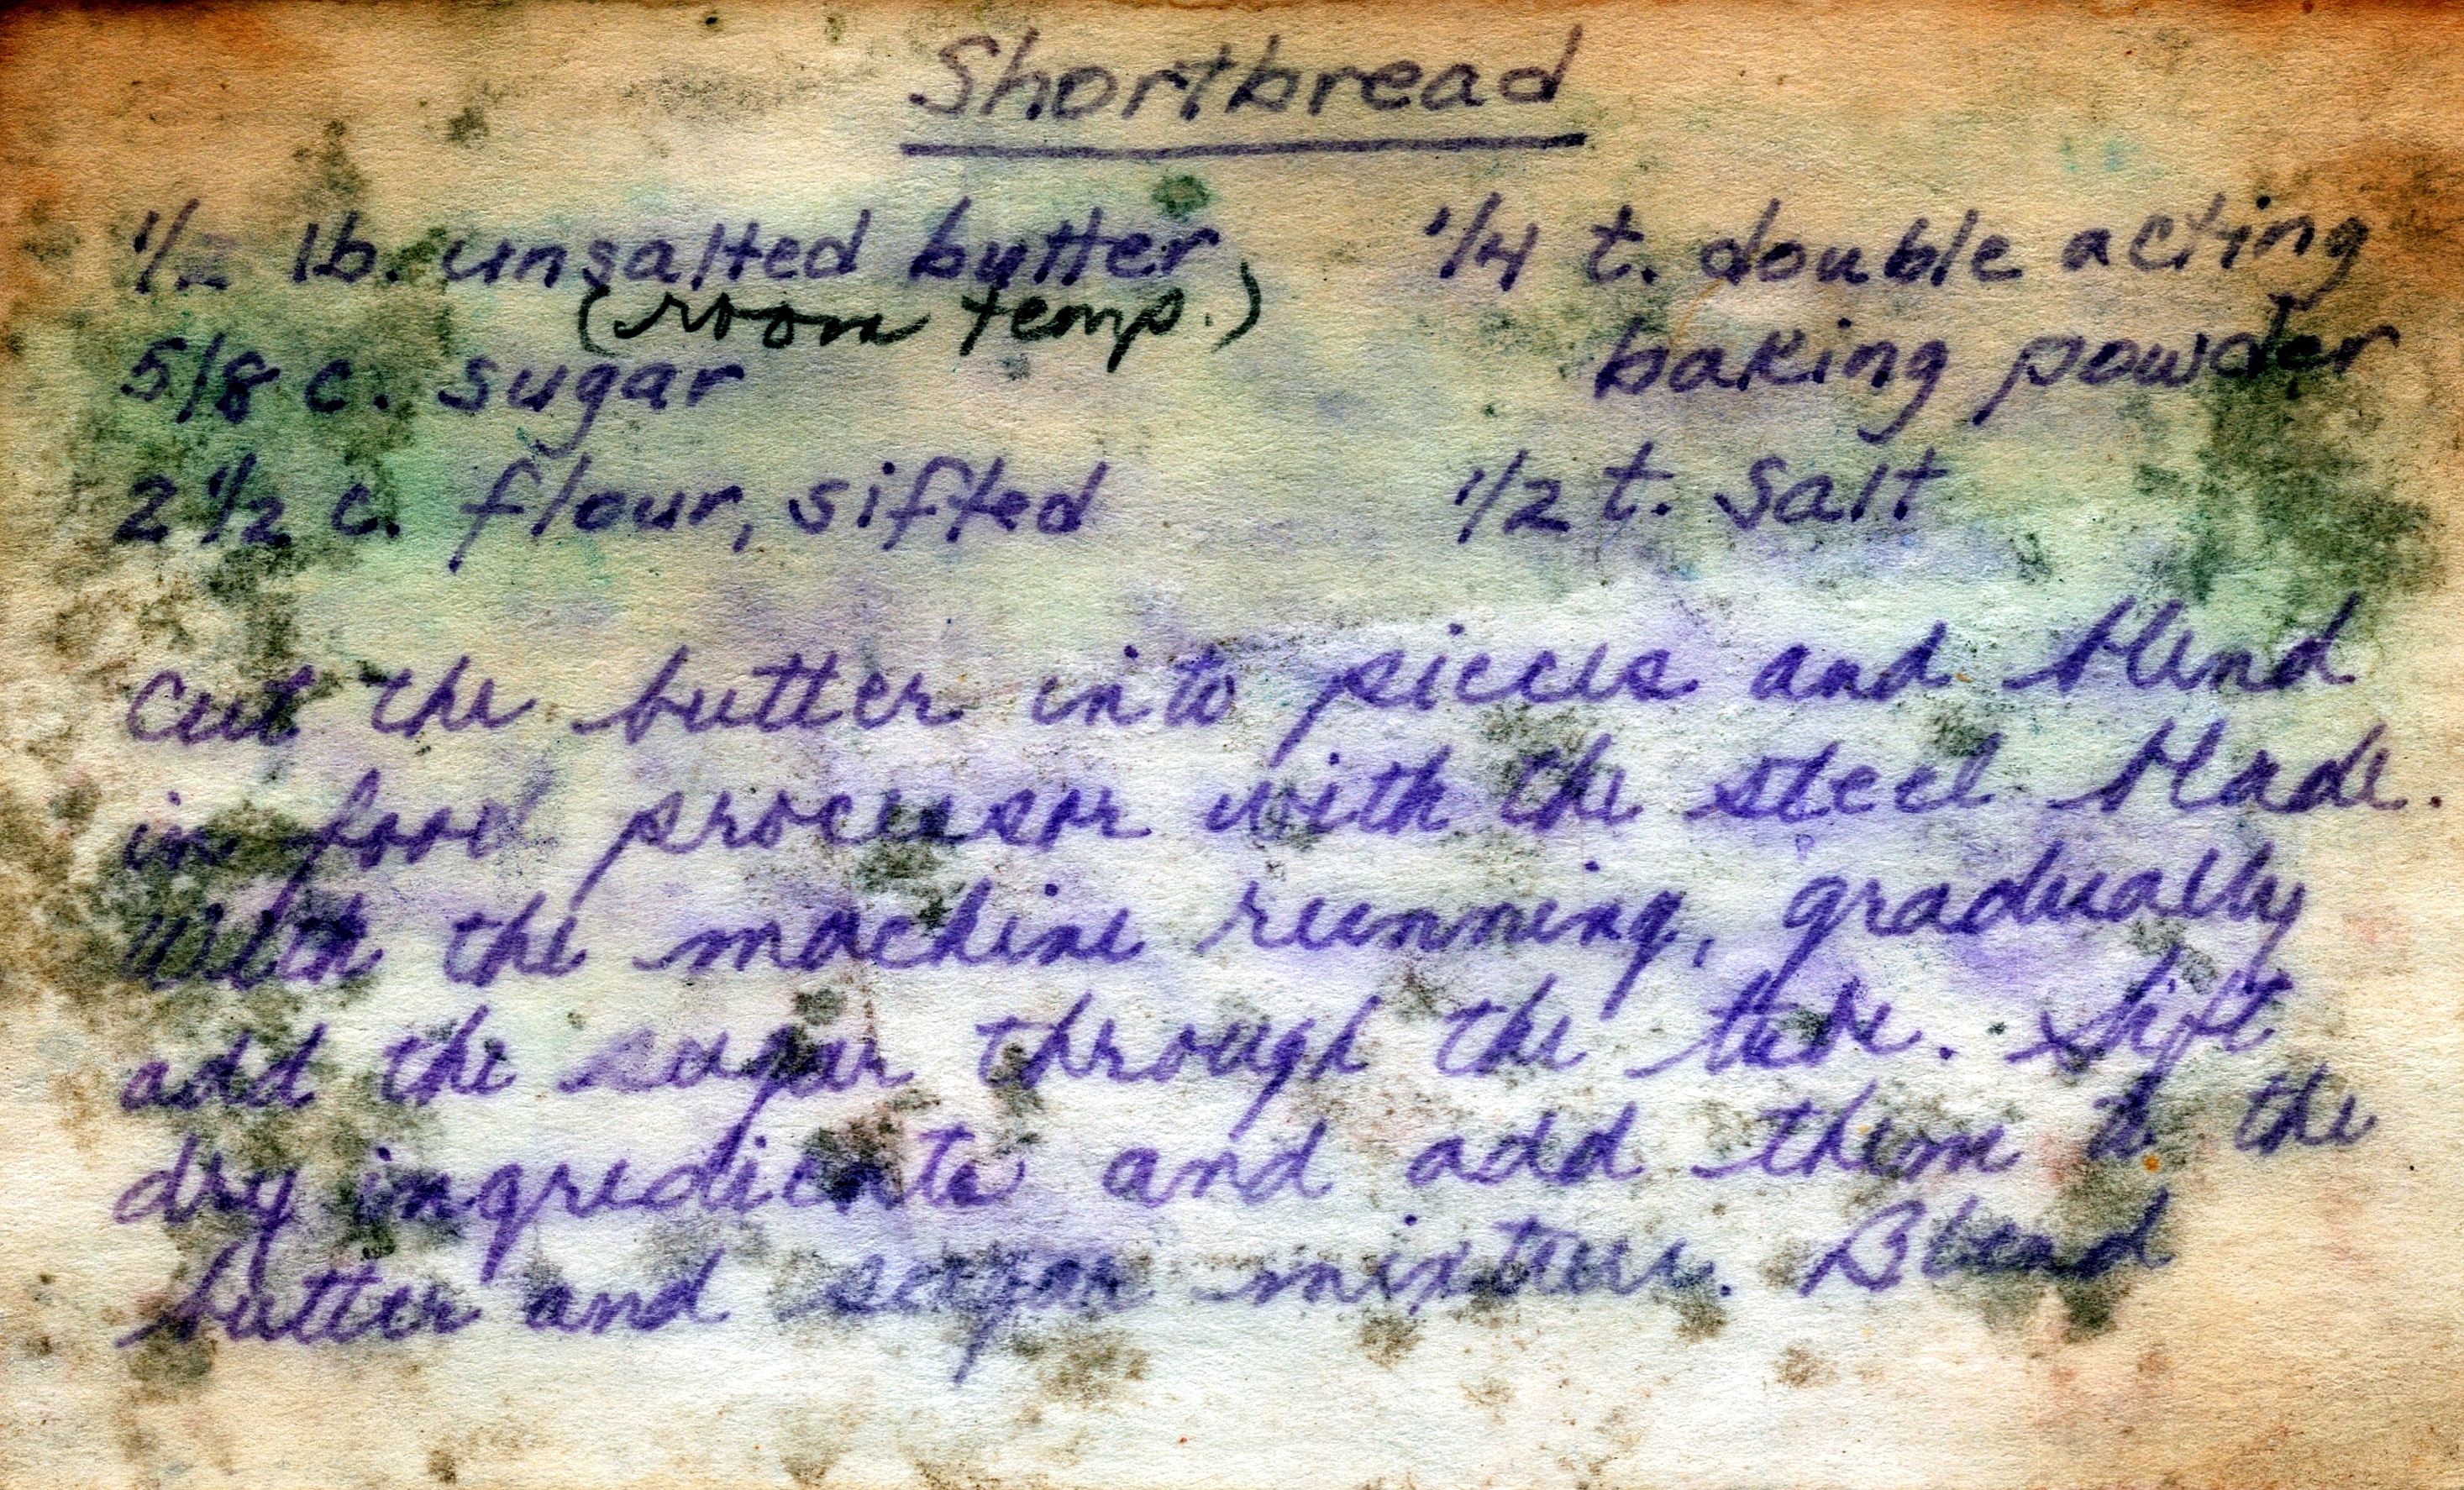 Shortbread
1/2 lb. unsalted butter
(room temp.)
5/8 c. sugar
2 1/2 c. flour, sifted
1/4 t. double acting
baking powder
1/2 t. salt
Cut the butter into pieces and blend
in food processor with the steel blade.
With the machine running, gradually
add the sugar through the tube. Sift
dry ingredients and add them to the
butter and sugar mixture. Blend